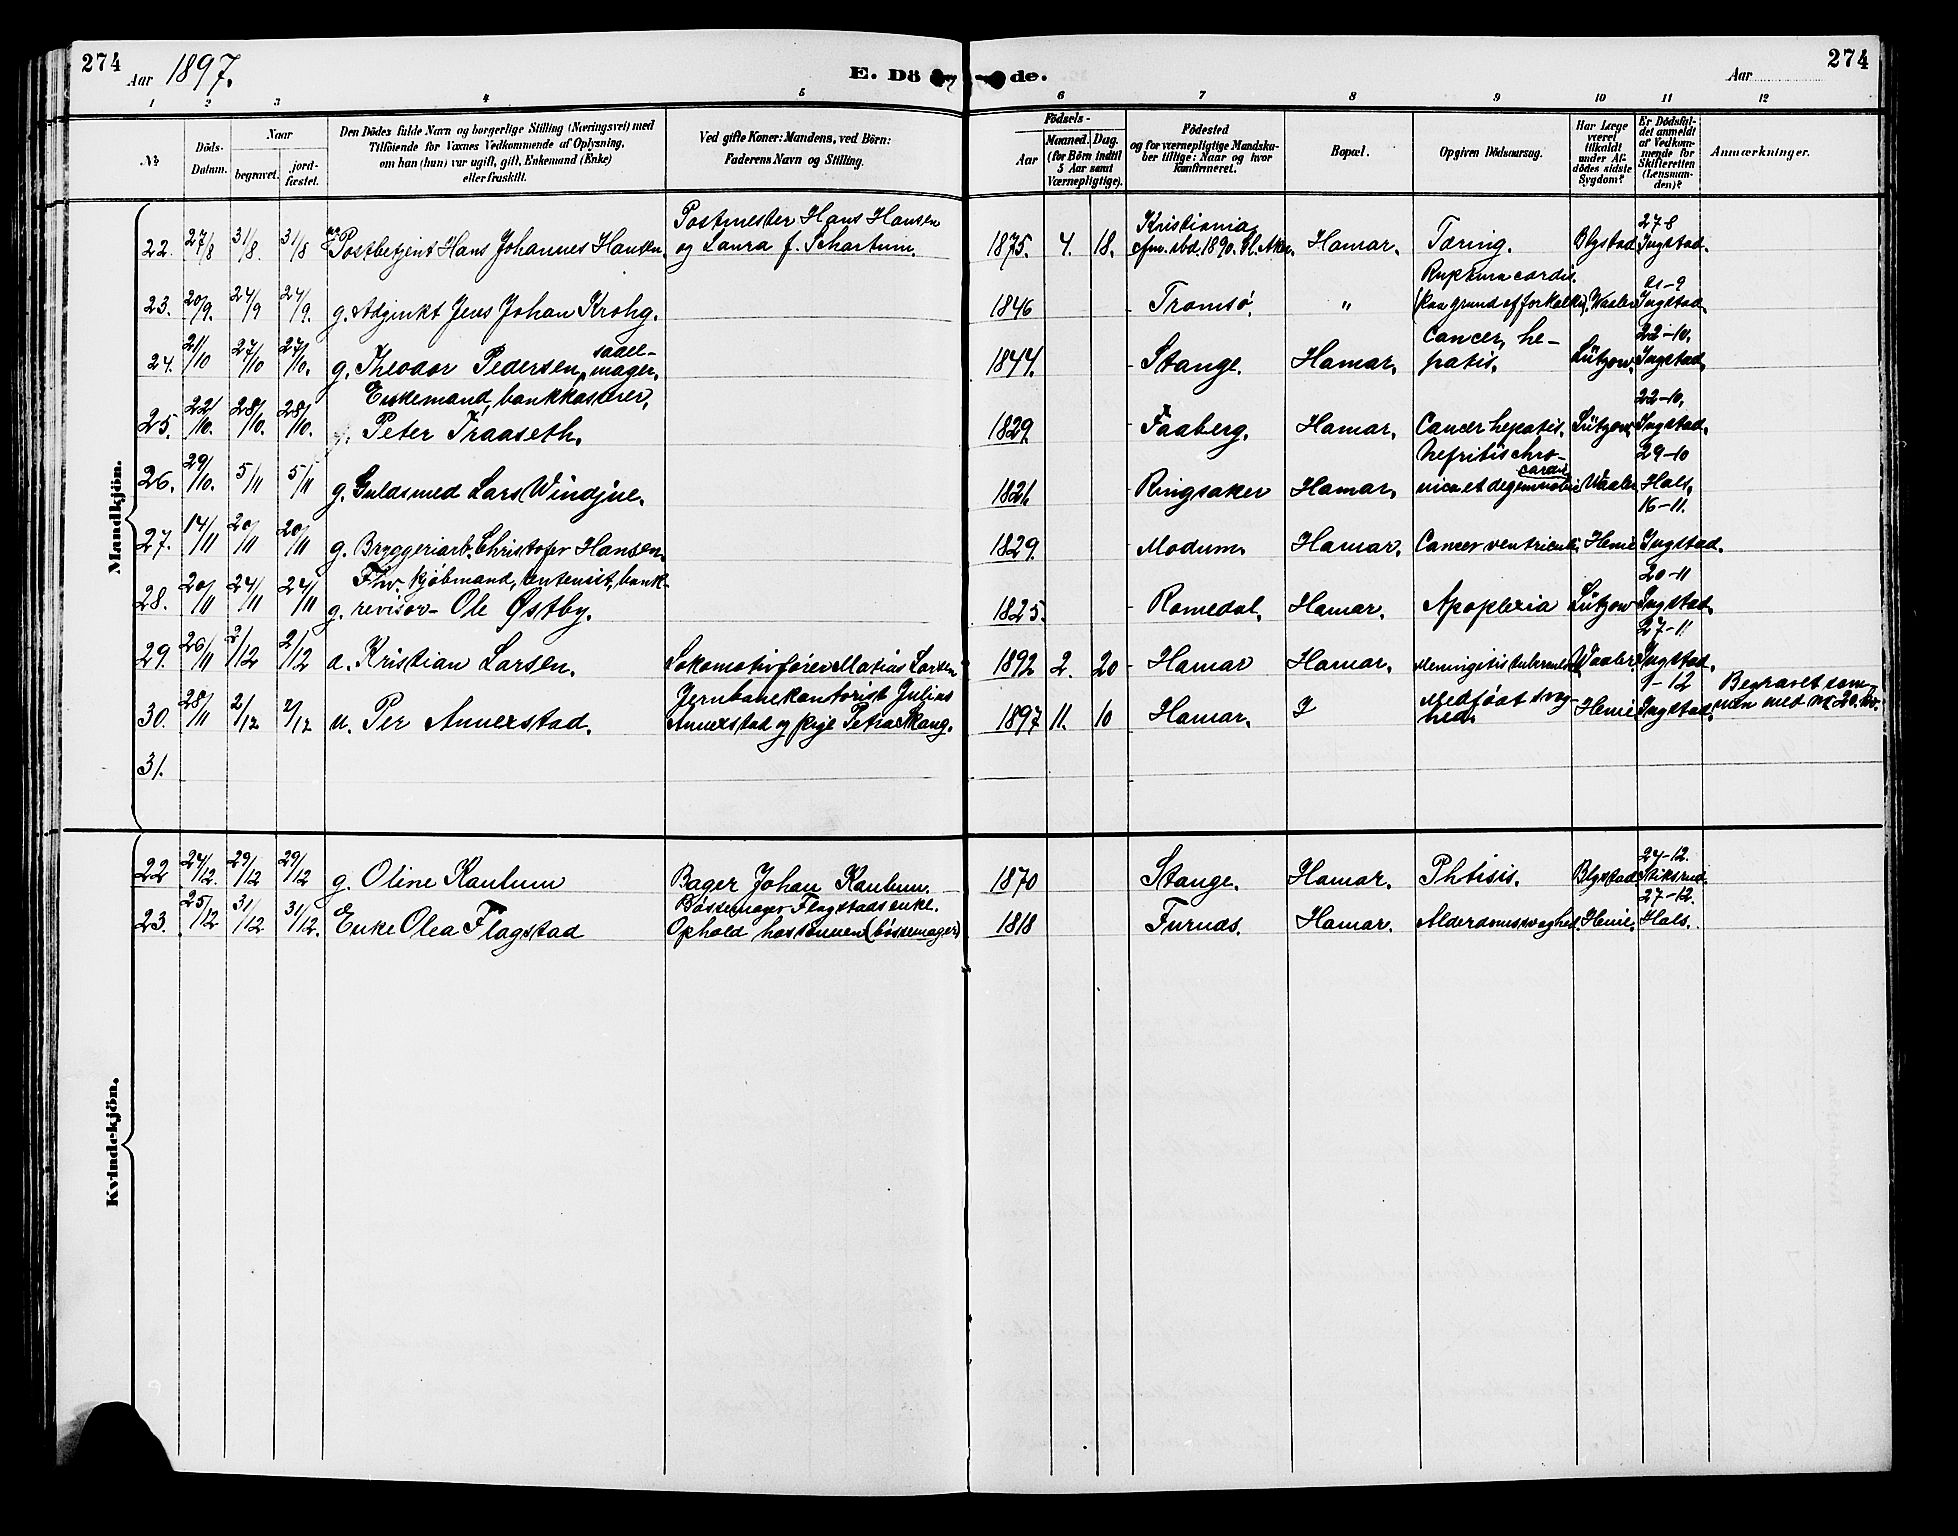 274
Aar 1897.
E. Dö de.
Aar
274
1 2 3 4 5 6 7 8 9 10 11 12
No
Döds-
Datum.
Naar
begravet.
jord-
fæstet.
Den Dödes fulde Navn og borgerlige Stilling (Næringsvei) med
Tilföiende for Voxnes Vedkommende af Oplysning,
om han (hun) var ugift, gift, Enkemand (Enke)
eller fraskilt.
Ved gifte Koner: Mandens, ved Börn:
Faderens Navn og Stilling.
Födsels-
Aar
Maaned. Dag.
(for Börn indtil
5 Aar samt
Værnepligtige).
Födested
og for værnepligtige Mandska-
ber tillige: Naar og hvor
konfirmeret.
Bopæl.
Opgiven Dödsaarsag.
Har Læge
været
tilkaldt
under Af-
dödes sidste
Sygdom?
Er Dödsfal-
det anmeldt
af Vedkom-
mende for
Skifteretten
(Lensman-
den)?
Anmærkninger.
Mandkjön.
Postmester Hans Hansen Kristiania 27-8
22. 27/8 31/8. 31/8 Postbetjent Hans Johannes Hansen. og Laura f. Schartum. 1875. 4. 18. cfm. sbd. 1890. Gl. Aker. Hamar. Tæring. Blystad Ingstad.
Ruptura cordis. 21-9
23. 20/9. 24/9 24/9. g. Adjunkt Jens Johan Krohg. 1846 Tromsø. " (paa grund af forkalkn). Waaler Ingstad.
sadel- Cancer he- 22-10.
24. 21/10 27/10 27/10. g. Theodor Pedersen, mager. 1844. Stange. Hamar. patis. Lützow. Ingstad.
Enkemand, bankkasserer, 22-10.
25. 22/10. 28/10. 28/10. Peter Traaseth. 1829. Faaberg. Hamar. Cancer hepatis. Lützow. Ingstad.
Nefritis chro- 29-10
26. 29/10. 5/11 5/11 g. Guldsmed Lars Windjue. 1821. Ringsaker Hamar. Waaler Hals.
16-11.
27. 14/11 20/11 20/11 g. Bryggeriarb. Christofer Hansen. 1829. Modum. Hamar. Cancer ventriculi. Henie Ingstad.
Fhv. kjøbmand, bank- 20-11
28. 20/11 24/11 24/11 g. revisor - Ole Østby. 1825. Romedal. Hamar. Apoplexia Lützow Ingstad.
27-11
29. 26/11 2/12 2/12 u. Kristian Larsen. Lokomotivfører Matias Larsen 1892 2. 20 Hamar Hamar. Waaler Ingstad.
Jernbanekantorist Julius Medfødt svag- 1-12 Begravet sam-
30. 28/11 2/12 2/12 u. Per Annerstad. Annerstad og pige Petra Skaug. 1897 11. 10 Hamar. hed. Henie Ingstad. men med No 20. kv.
31.
Kvindekjön.
24-12.
22 24/12. 29/12 29/12 g. Oline Kantum Bager Johan Kantum. 1870 Stange. Hamar. Phtisis. Blystad Stiksrud.
Bøssemager Flagstads enke. 27-12.
23. 25/12 31/12 31/12. Enke Olea Flagstad Ophold hos sønnen (bøssemager) 1818 Furnæs. Hamar. Alderdomssvaghed. Henie. Hals.